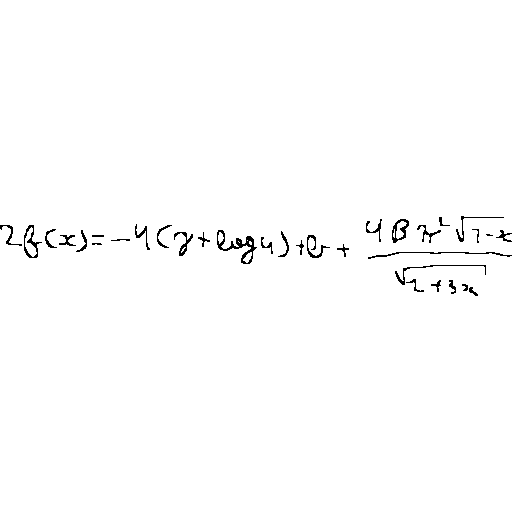 2f(x) = -4(γ + log 4) + b + \frac{4 B π^2 \sqrt{1-x}}{\sqrt{1+3x}}